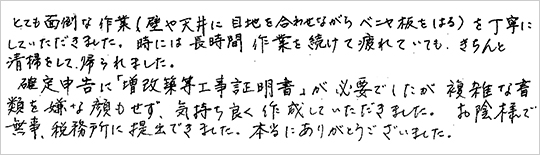 とても面倒な作業（壁や天井に目地を合わせながらベニヤ板をはる）を丁寧に
していただきました。時には長時間作業を続けて疲れていても、きちんと
清掃をして、帰られました。
確定申告に「増改築等工事証明書」が必要でしたが複雑な書
類を嫌な顔もせず、気持ち良く作成していただきました。お陰様で
無事、税務所に提出できました。本当にありがとうございました。